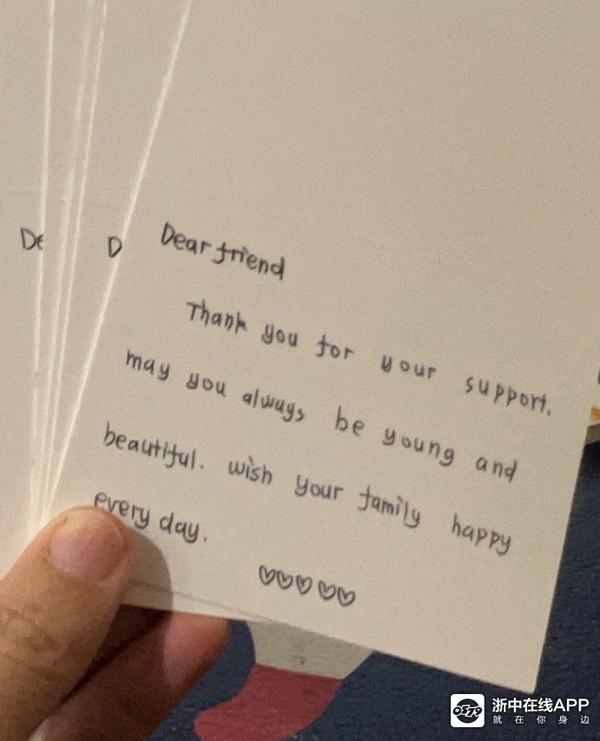 De
D
Dear friend
Thank you for your support.
may you always be young and
beautiful. wish your family happy
every day.
♡♡♡♡♡
浙中在线APP
就在你身边